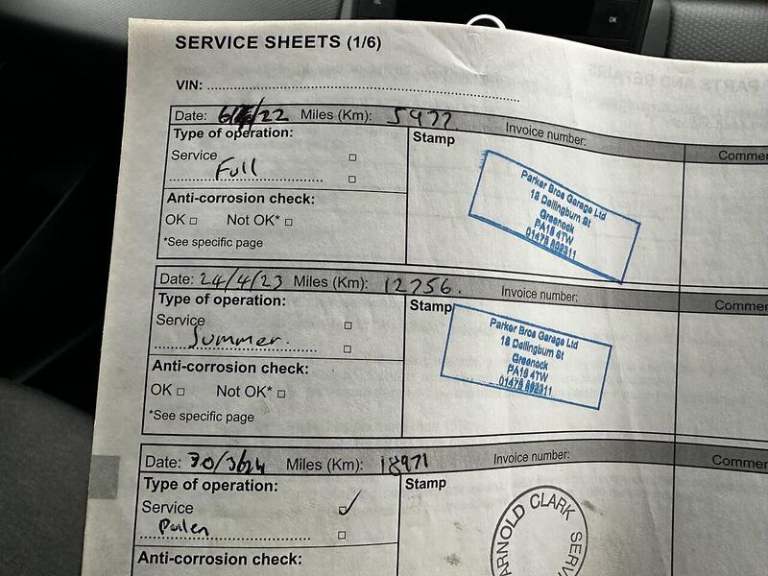 SERVICE SHEETS (1/6)
VIN:
Date: /22 Miles (Km): 5977 Invoice number:
Type of operation: Stamp Commen
Service
Full
Anti-corrosion check:
OK Not OK*
*See specific page
Parker Bros Garage Ltd
18 Dellingburn St
Greenock
PA15 4TW
01475
Date: 24/4/23 Miles (Km): 12756. Invoice number:
Type of operation: Stamp Commen
Service
Summer.
Anti-corrosion check:
OK Not OK*
*See specific page
Parker Bros Garage Ltd
18 Dellingburn St
Greenock
PA15 4TW
01475
Date: 30/3/24 Miles (Km): 18971 Invoice number:
Type of operation: Stamp Commen
Service
Pollen
Anti-corrosion check:
ARNOLD CLARK SERV